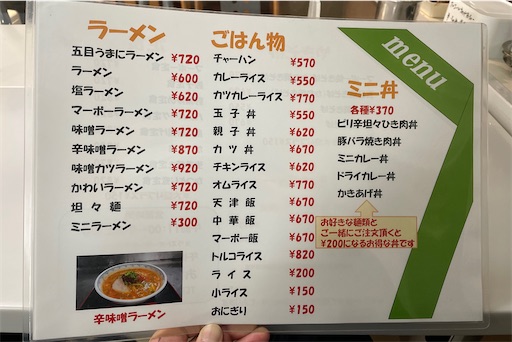 ラーメン
五目うまにラーメン ¥720
ラーメン ¥600
塩ラーメン ¥620
マーボーラーメン ¥720
味噌ラーメン ¥720
辛味噌ラーメン ¥870
味噌カツラーメン ¥920
かわいラーメン ¥720
坦々麺 ¥720
ミニラーメン ¥300
辛味噌ラーメン
ごはん物
チャーハン ¥570
カレーライス ¥550
カツカレーライス ¥770
玉子丼 ¥550
親子丼 ¥620
カツ丼 ¥670
チキンライス ¥620
オムライス ¥770
天津飯 ¥670
中華飯 ¥670
マーボー飯 ¥670
トルコライス ¥820
ライス ¥200
小ライス ¥150
おにぎり ¥150
menu
ミニ丼
各種¥370
ピリ辛坦々ひき肉丼
豚バラ焼き肉丼
ミニカレー丼
ドライカレー丼
かきあげ丼
お好きな麺類と
ご一緒にご注文頂くと
¥200になるお得な丼です